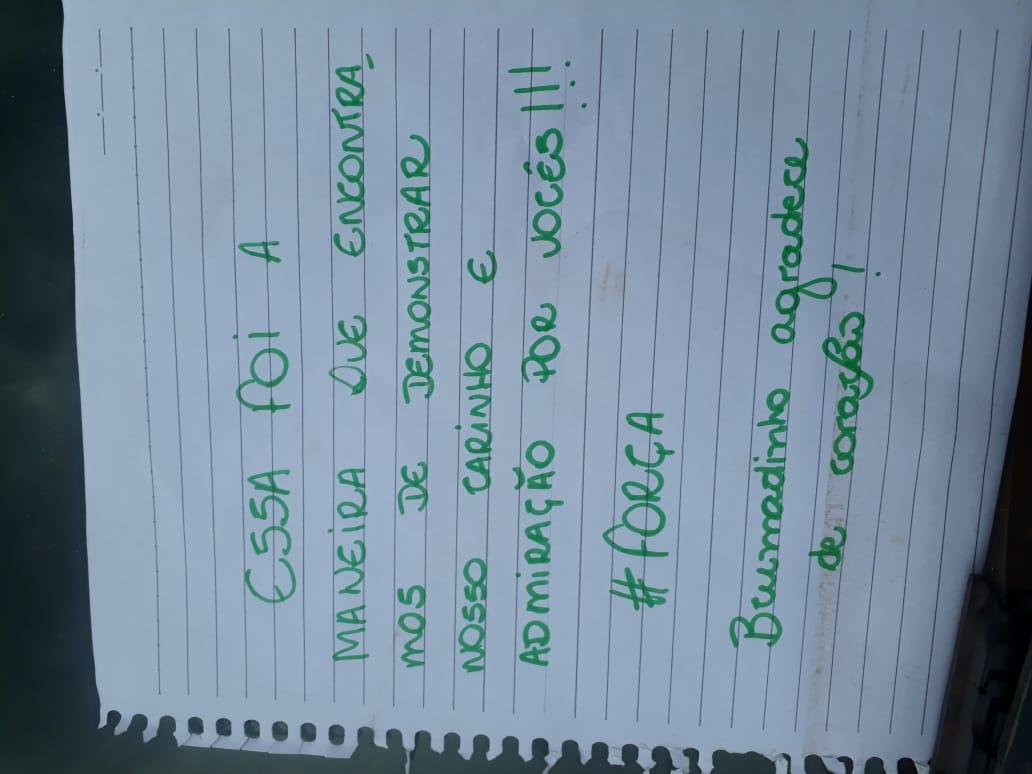 ESSA FOI A
MANEIRA QUE ENCONTRA-
MOS DE DEMONSTRAR
NOSSO CARINHO E
ADMIRAÇÃO POR VOCÊS!!!
#FORÇA
Brumadinho agradece
de coração!